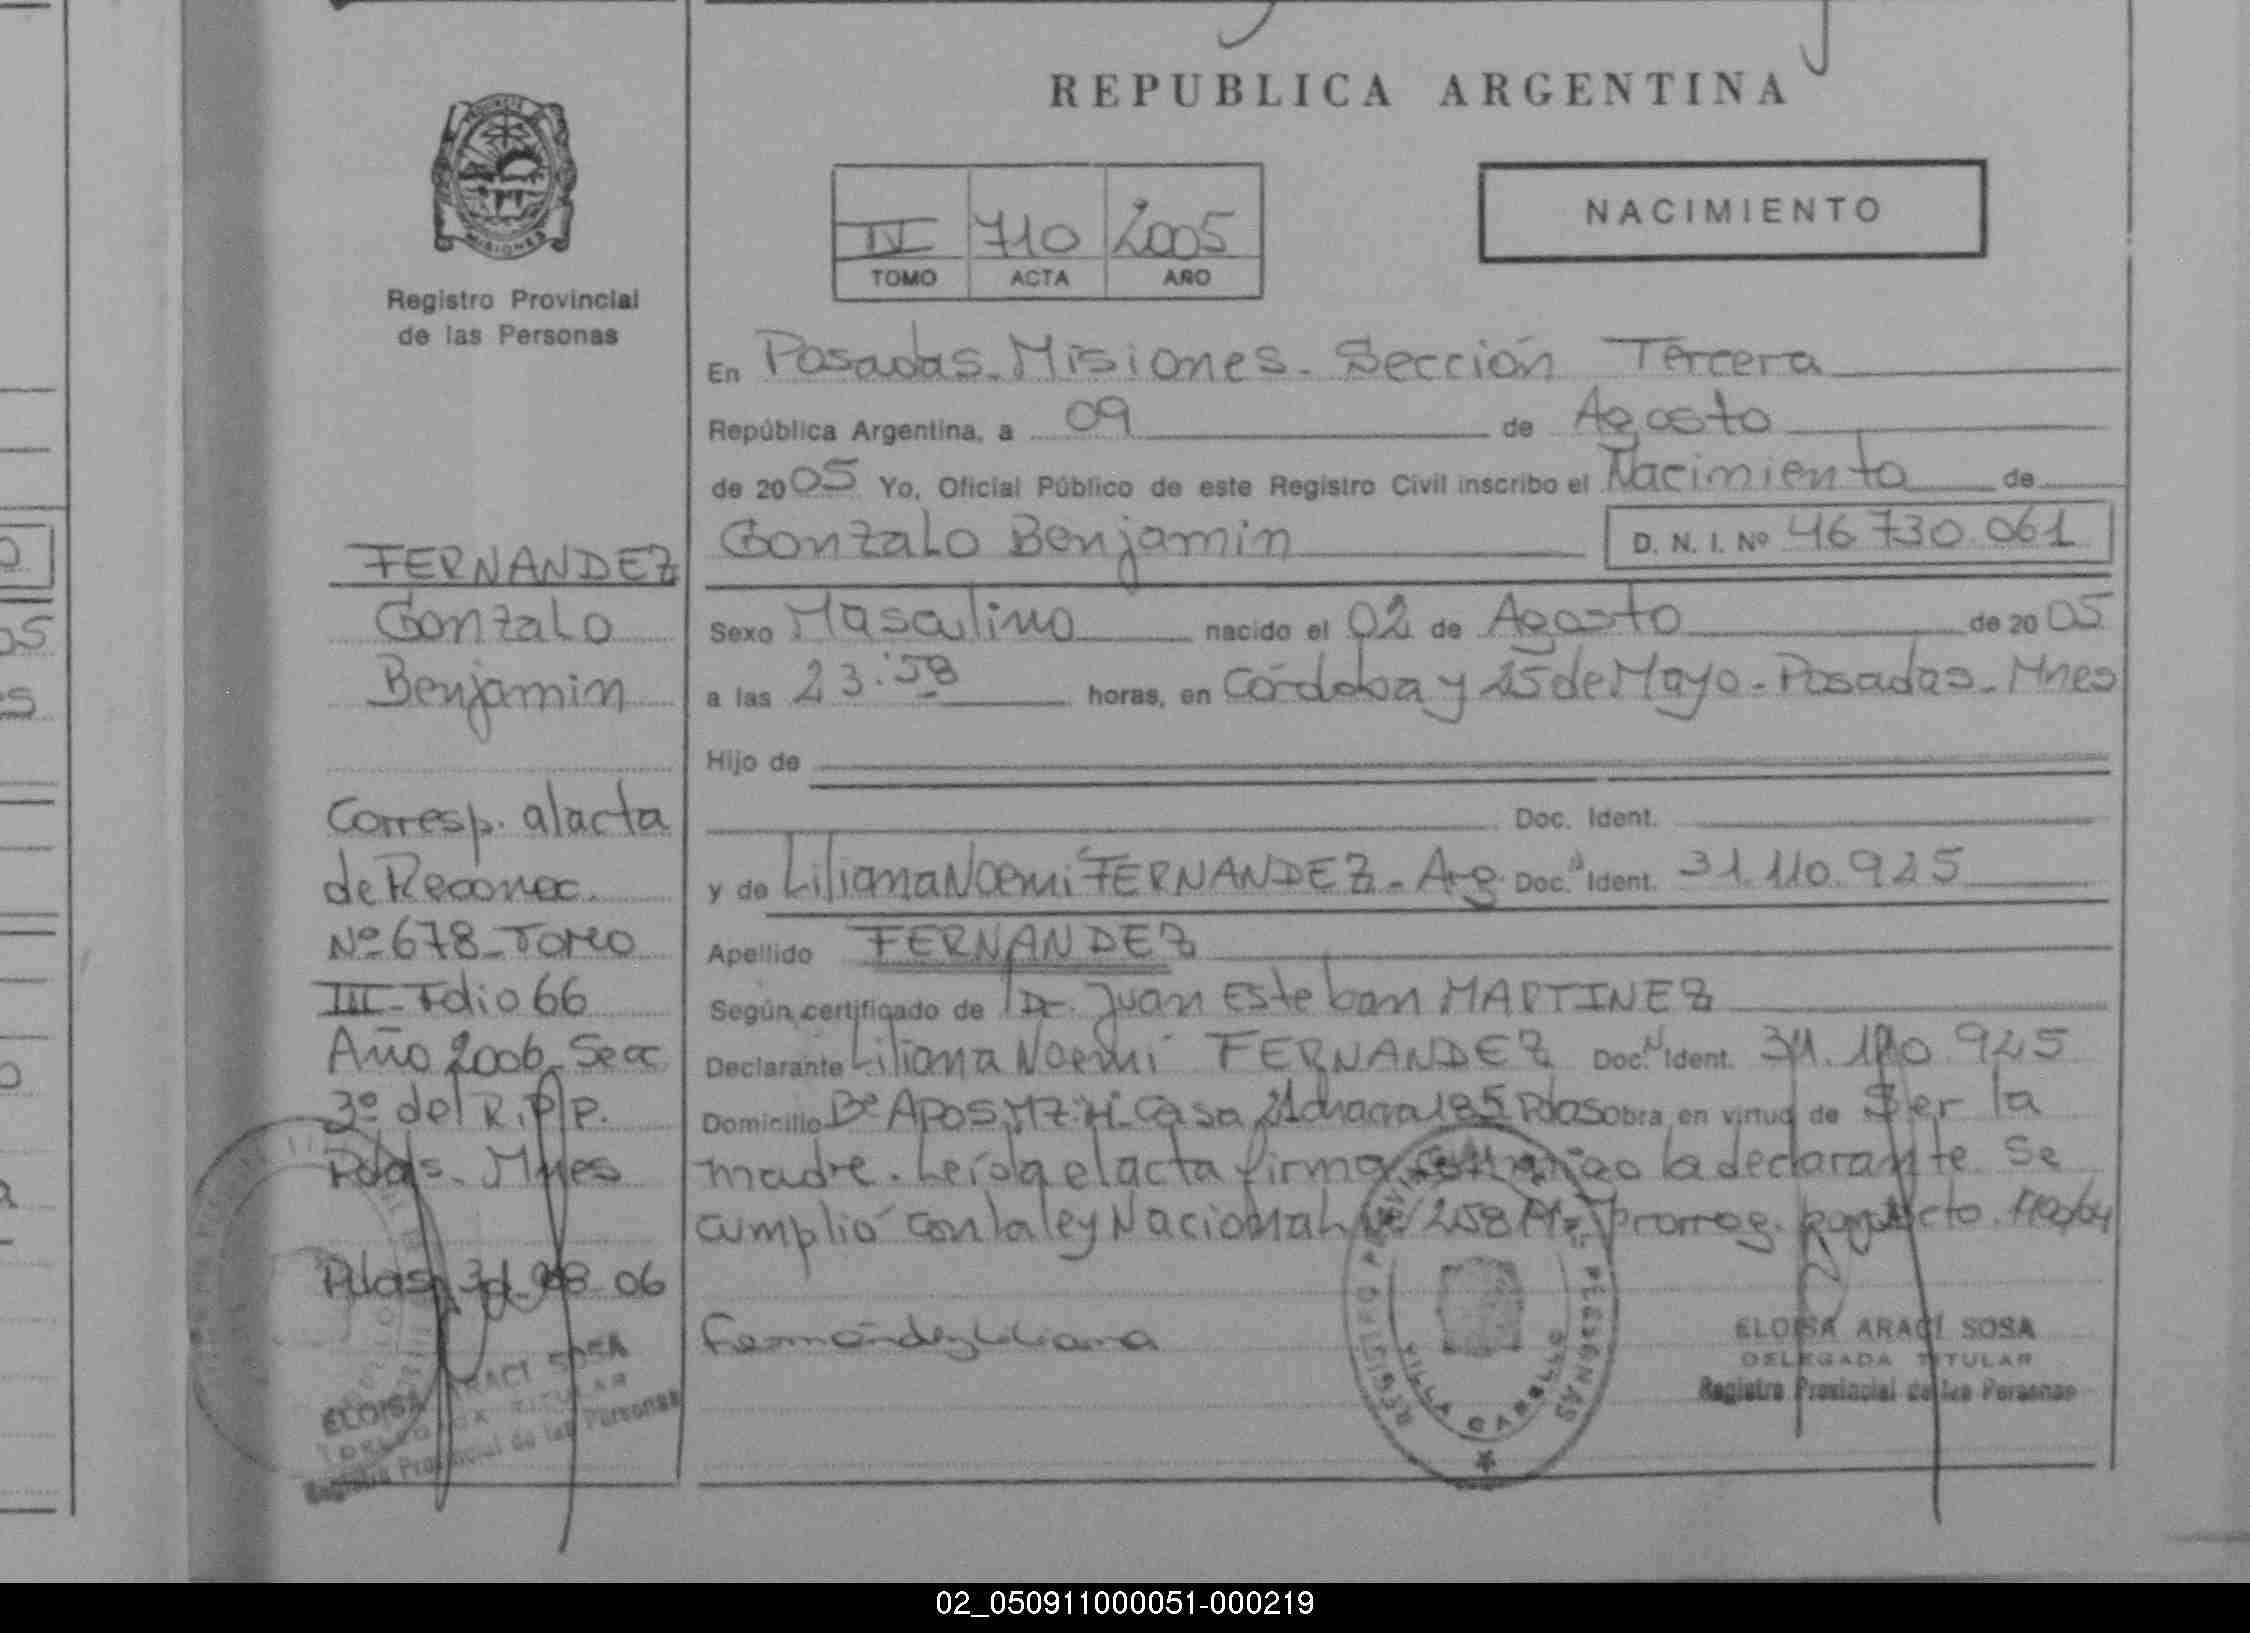 REPUBLICA ARGENTINA
PROVINCIA
MISIONES
Registro Provincial
de las Personas
IV 710 2005
TOMO ACTA AÑO
NACIMIENTO
En Posadas-Misiones-Sección Tercera
República Argentina, a 09 de Agosto
de 2005 Yo, Oficial Público de este Registro Civil inscribo el Nacimiento de
Gonzalo Benjamin D. N. I. Nº 46.730.061
Sexo Masculino nacido el 02 de Agosto de 2005
a las 23:58 horas, en Córdoba y 25 de Mayo-Posadas-Mnes
Hijo de
Doc. Ident.
y de Liliana Noemí FERNANDEZ-Arg Doc. Ident. 31.110.925
Apellido FERNANDEZ
Según certificado de Dr. Juan Esteban MARTINEZ
Declarante Liliana Noemí FERNANDEZ Doc. Ident. 31.110.925
Domicilio Bº APOS MZ:H-Casa 21 chacra 185 Pdas obra en virtud de Ser la
madre. Leída el acta firma conmigo la declarante. Se
cumplió con la ley Nacional Nº prorrog.
Fernández Liliana
REGISTRO PROVINCIAL DE LAS PERSONAS
VILLA CABELLO
ELOISA ARACI SOSA
DELEGADA TITULAR
Registro Provincial de las Personas
FERNANDEZ
Gonzalo
Benjamin
Corresp. al acta
de Reconoc.
Nº 678-Tomo
III-Folio 66
Año 2006-Secc
3º del R.P.P.
Pdas-Mnes
Pdas, 06
ELOISA ARACI SOSA
DELEGADA TITULAR
Registro Provincial de las Personas
02_050911000051-000219